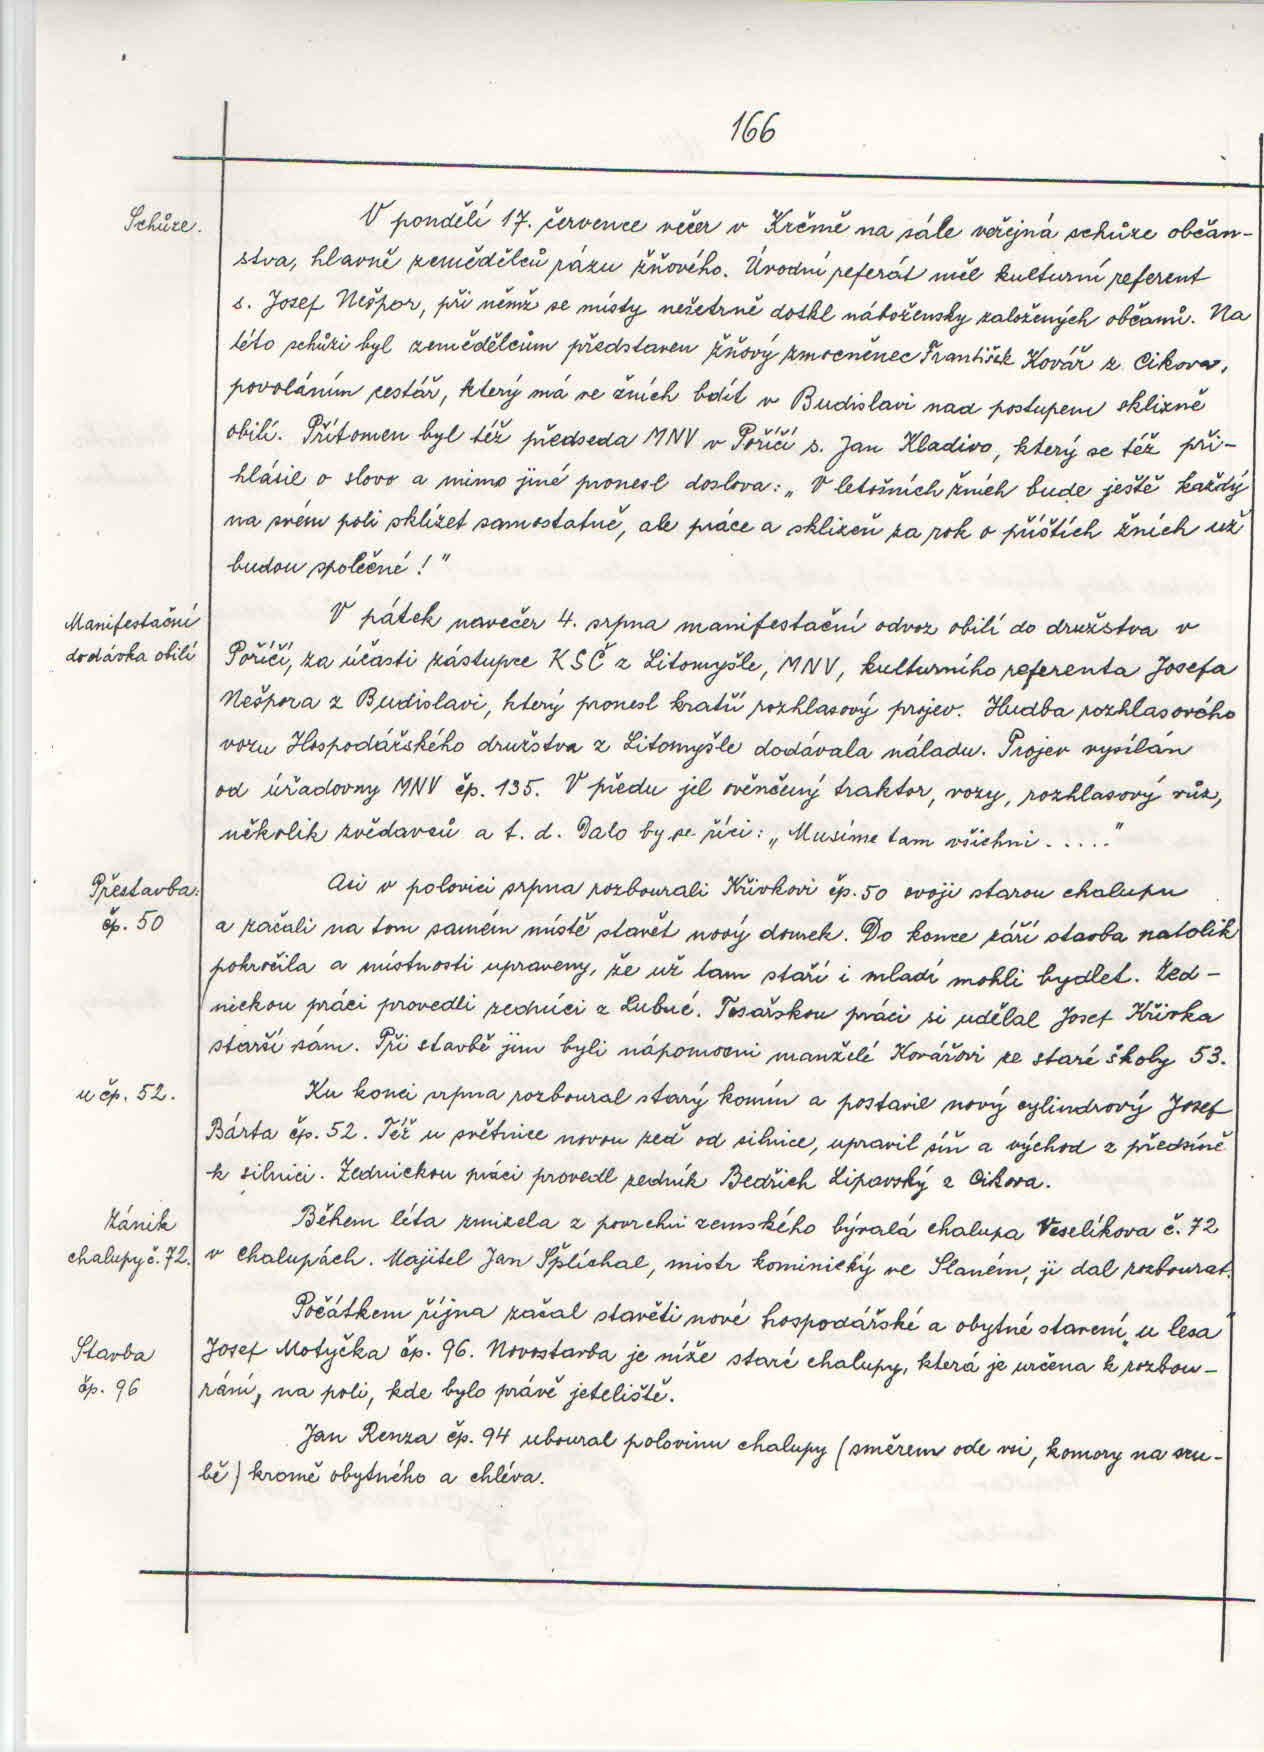 166
Schůze.
V pondělí 17. července večer v Krčmě na sále veřejná schůze občan-
stva, hlavně zemědělců rázu žňového. Úvodní referát měl kulturní referent
s. Josef Nešpor, při němž se místy nešetrně dotkl nábožensky založených občanů. Na
této schůzi byl zemědělcům představen žňový zmocněnec František Kovář z Cikova,
povoláním cestář, který má ve žních bdít v Budislavi nad postupem sklizně
obilí. Přítomen byl též předseda MNV v Poříčí s. Jan Kladivo, který se též při-
hlásil o slovo a mimo jiné pronesl doslova: „V letošních žních bude ještě každý
na svém poli sklízet samostatně, ale práce a sklizeň za rok o příštích žních už
budou společné!"
Manifestační
dodávka obilí
V pátek navečer 4. srpna manifestační odvoz obilí do družstva v
Poříčí, za účasti zástupce KSČ z Litomyšle, MNV, kulturního referenta Josefa
Nešpora z Budislavi, který pronesl kratší rozhlasový projev. Hudba rozhlasového
vozu Hospodářského družstva z Litomyšle dodávala náladu. Projev vysílán
od úřadovny MNV čp. 135. V předu jel ověnčený traktor, vozy, rozhlasový vůz,
několik zvědavců a t. d. Dalo by se říci: „Musíme tam všichni ....."
Přestavba:
čp. 50
Asi v polovici srpna rozbourali Křivkovi čp. 50 svoji starou chalupu
a začali na tom samém místě stavět nový domek. Do konce září stavba natolik
pokročila a místnosti upraveny, že už tam staří i mladí mohli bydlet. Zed-
nickou práci provedli zedníci z Lubné. Tesařskou práci si udělal Josef Křivka
starší sám. Při stavbě jim byli nápomocni manželé Kovářovi ze staré školy 53.
u čp. 52.
Ku konci srpna rozboural starý komín a postavil nový cylindrový Josef
Bárta čp. 52. Též u světnice novou zeď od silnice, upravil síň a východ z předsíně
k silnici. Zednickou práci provedl zedník Bedřich Lipavský z Cikova.
Zánik
chalupy č. 72.
Během léta zmizela z povrchu zemského bývalá chalupa Veselíkova č. 72
v Chalupách. Majitel Jan Šplíchal, mistr kominický ve Slaném, ji dal rozbourat.
Stavba
čp. 96
Počátkem října začal stavěti nové hospodářské a obytné stavení „u lesa"
Josef Motyčka čp. 96. Novostavba je níže staré chalupy, která je určena k rozbou-
rání, na poli, kde bylo právě jeteliště.
Jan Renza čp. 94 uboural polovinu chalupy (směrem ode vsi, komory na sru-
bě) kromě obytného a chléva.